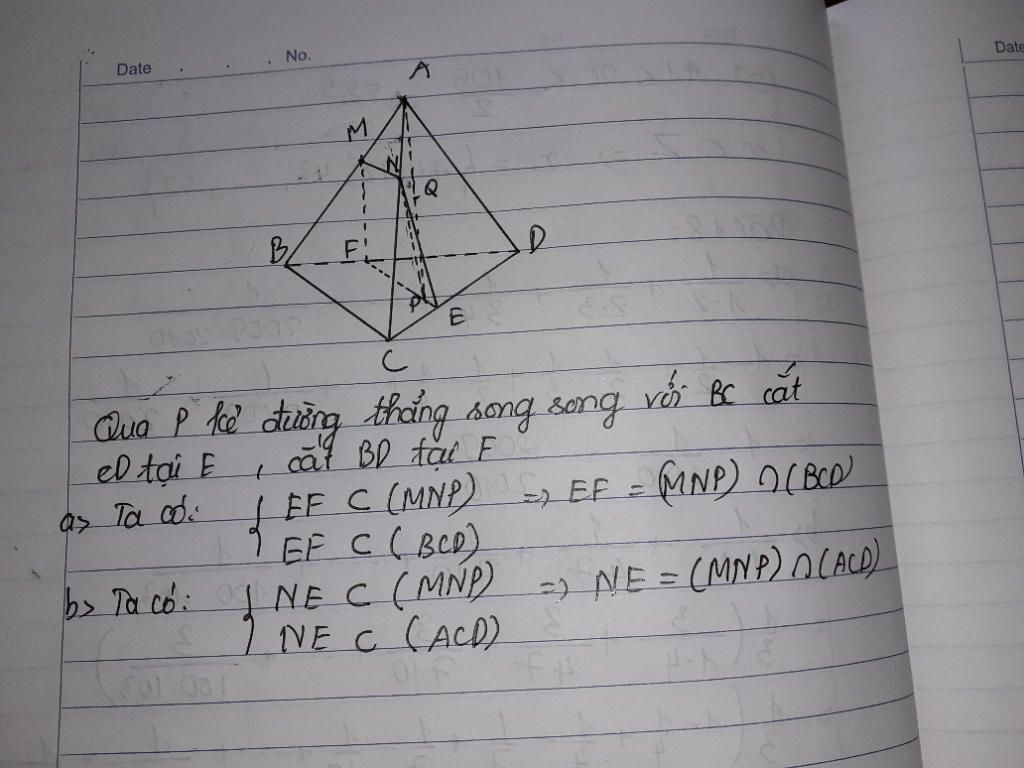 Date . . . No.
Date
A
M
N
Q
B
F
D
P
E
C
Qua P kẻ đường thẳng song song với BC cắt
CD tại E , cắt BD tại F
a> Ta có: { EF ⊂ (MNP) => EF = (MNP) ∩ (BCD)
EF ⊂ (BCD)
b> Ta có: { NE ⊂ (MNP) => NE = (MNP) ∩ (ACD)
NE ⊂ (ACD)